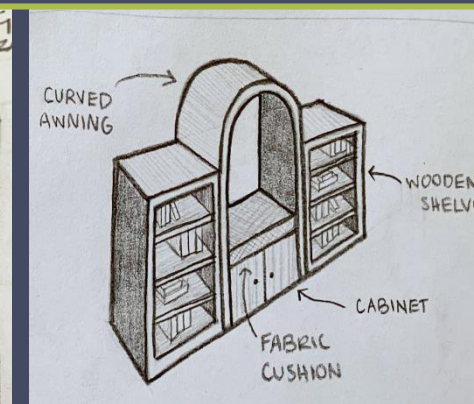 CURVED
AWNING
WOODEN
CABINET
FABRIC
CUSHION